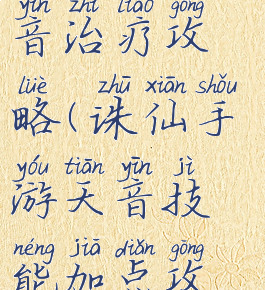 yīn zhì liáo gōng
音治疗攻
lüè zhū xiān shǒu
略(诛仙手
yóu tiān yīn jì
游天音技
néng jiā diǎn gōng
能加点攻